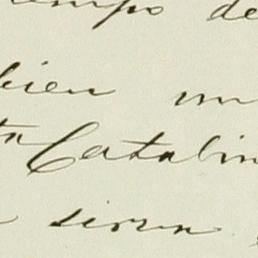 empo de
bien un
ta Catalin
sirva